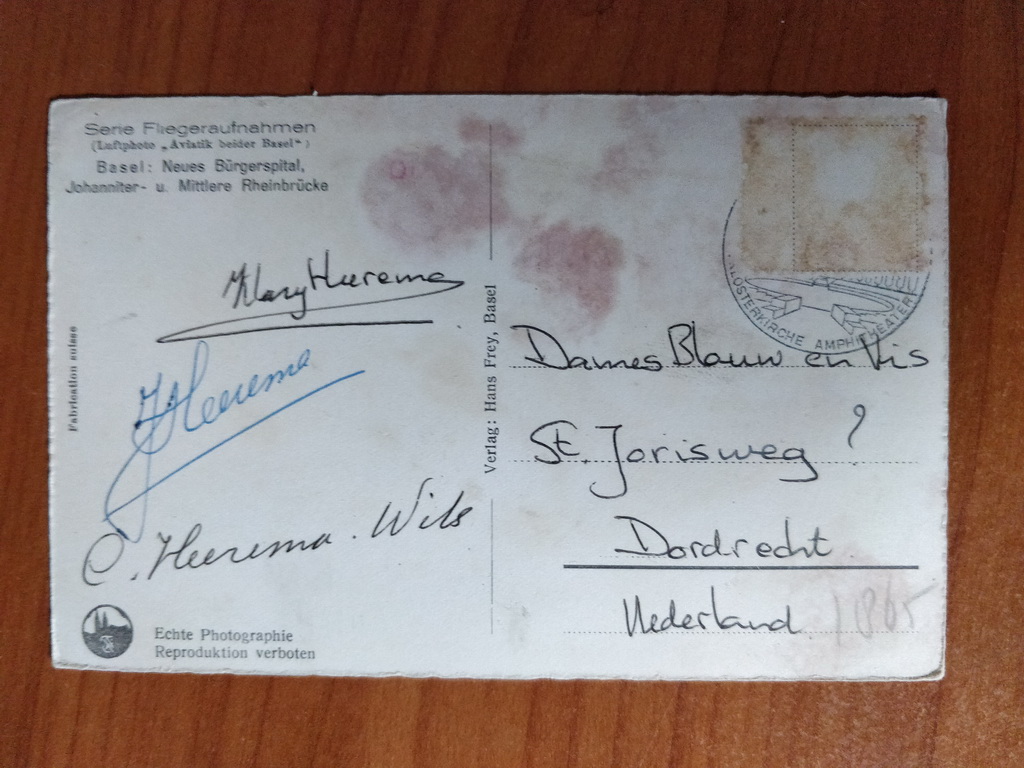 Serie Fliegeraufnahmen
(Luftphoto „Aviatik beider Basel")
Basel: Neues Bürgerspital,
Johanniter- u. Mittlere Rheinbrücke
Heerema
Fabrication suisse
Heerema
C. Heerema. Wils
Echte Photographie
Reproduktion verboten
Verlag: Hans Frey, Basel
KLOSTERKIRCHE AMPHITHEATER
Dames Blauw en Vis
St. Jorisweg ?
Dordrecht
Nederland